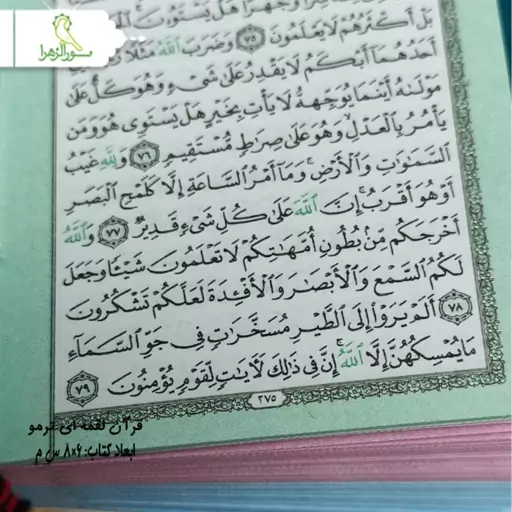 نورالزهرا
بَلْ أَكْثَرُهُمْ لَا يَعْلَمُونَ ﴿٧٥﴾ وَضَرَبَ اللَّهُ مَثَلًا
أَحَدُهُمَا أَبْكَمُ لَا يَقْدِرُ عَلَىٰ شَيْءٍ وَهُوَ كَلٌّ عَلَىٰ
مَوْلَاهُ أَيْنَمَا يُوَجِّهْهُ لَا يَأْتِ بِخَيْرٍ هَلْ يَسْتَوِي هُوَ وَمَنْ
يَأْمُرُ بِالْعَدْلِ وَهُوَ عَلَىٰ صِرَاطٍ مُسْتَقِيمٍ ﴿٧٦﴾ وَلِلَّهِ غَيْبُ
السَّمَاوَاتِ وَالْأَرْضِ وَمَا أَمْرُ السَّاعَةِ إِلَّا كَلَمْحِ الْبَصَرِ
أَوْ هُوَ أَقْرَبُ إِنَّ اللَّهَ عَلَىٰ كُلِّ شَيْءٍ قَدِيرٌ ﴿٧٧﴾ وَاللَّهُ
أَخْرَجَكُمْ مِنْ بُطُونِ أُمَّهَاتِكُمْ لَا تَعْلَمُونَ شَيْئًا وَجَعَلَ
لَكُمُ السَّمْعَ وَالْأَبْصَارَ وَالْأَفْئِدَةَ لَعَلَّكُمْ تَشْكُرُونَ
﴿٧٨﴾ أَلَمْ يَرَوْا إِلَى الطَّيْرِ مُسَخَّرَاتٍ فِي جَوِّ السَّمَاءِ
مَا يُمْسِكُهُنَّ إِلَّا اللَّهُ إِنَّ فِي ذَٰلِكَ لَآيَاتٍ لِقَوْمٍ يُؤْمِنُونَ ﴿٧٩﴾
٢٧٥
قرآن لقمه ای ترمو
ابعاد کتاب: ۸×۶ س م